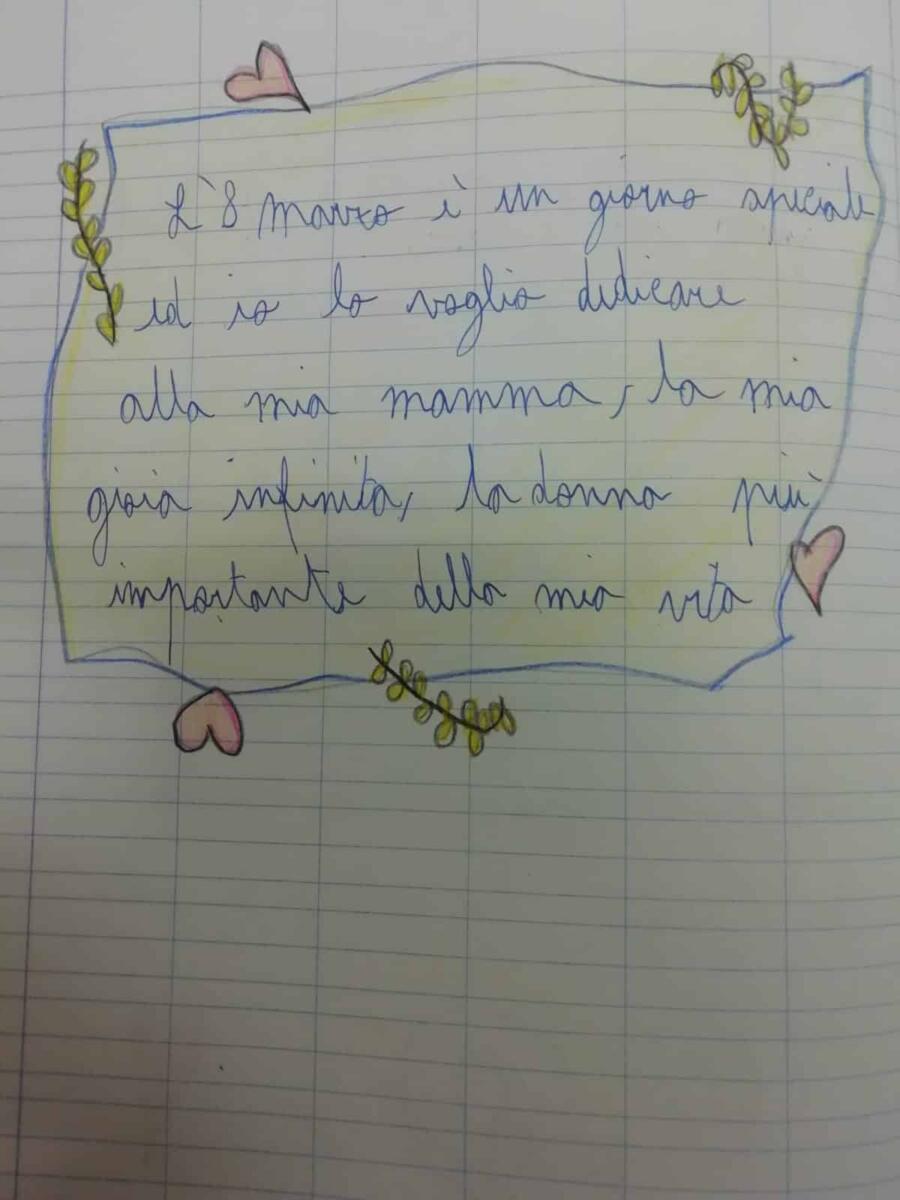 L'8 marzo è un giorno speciale
ed io lo voglio dedicare
alla mia mamma, la mia
gioia infinita, la donna più
importante della mia vita